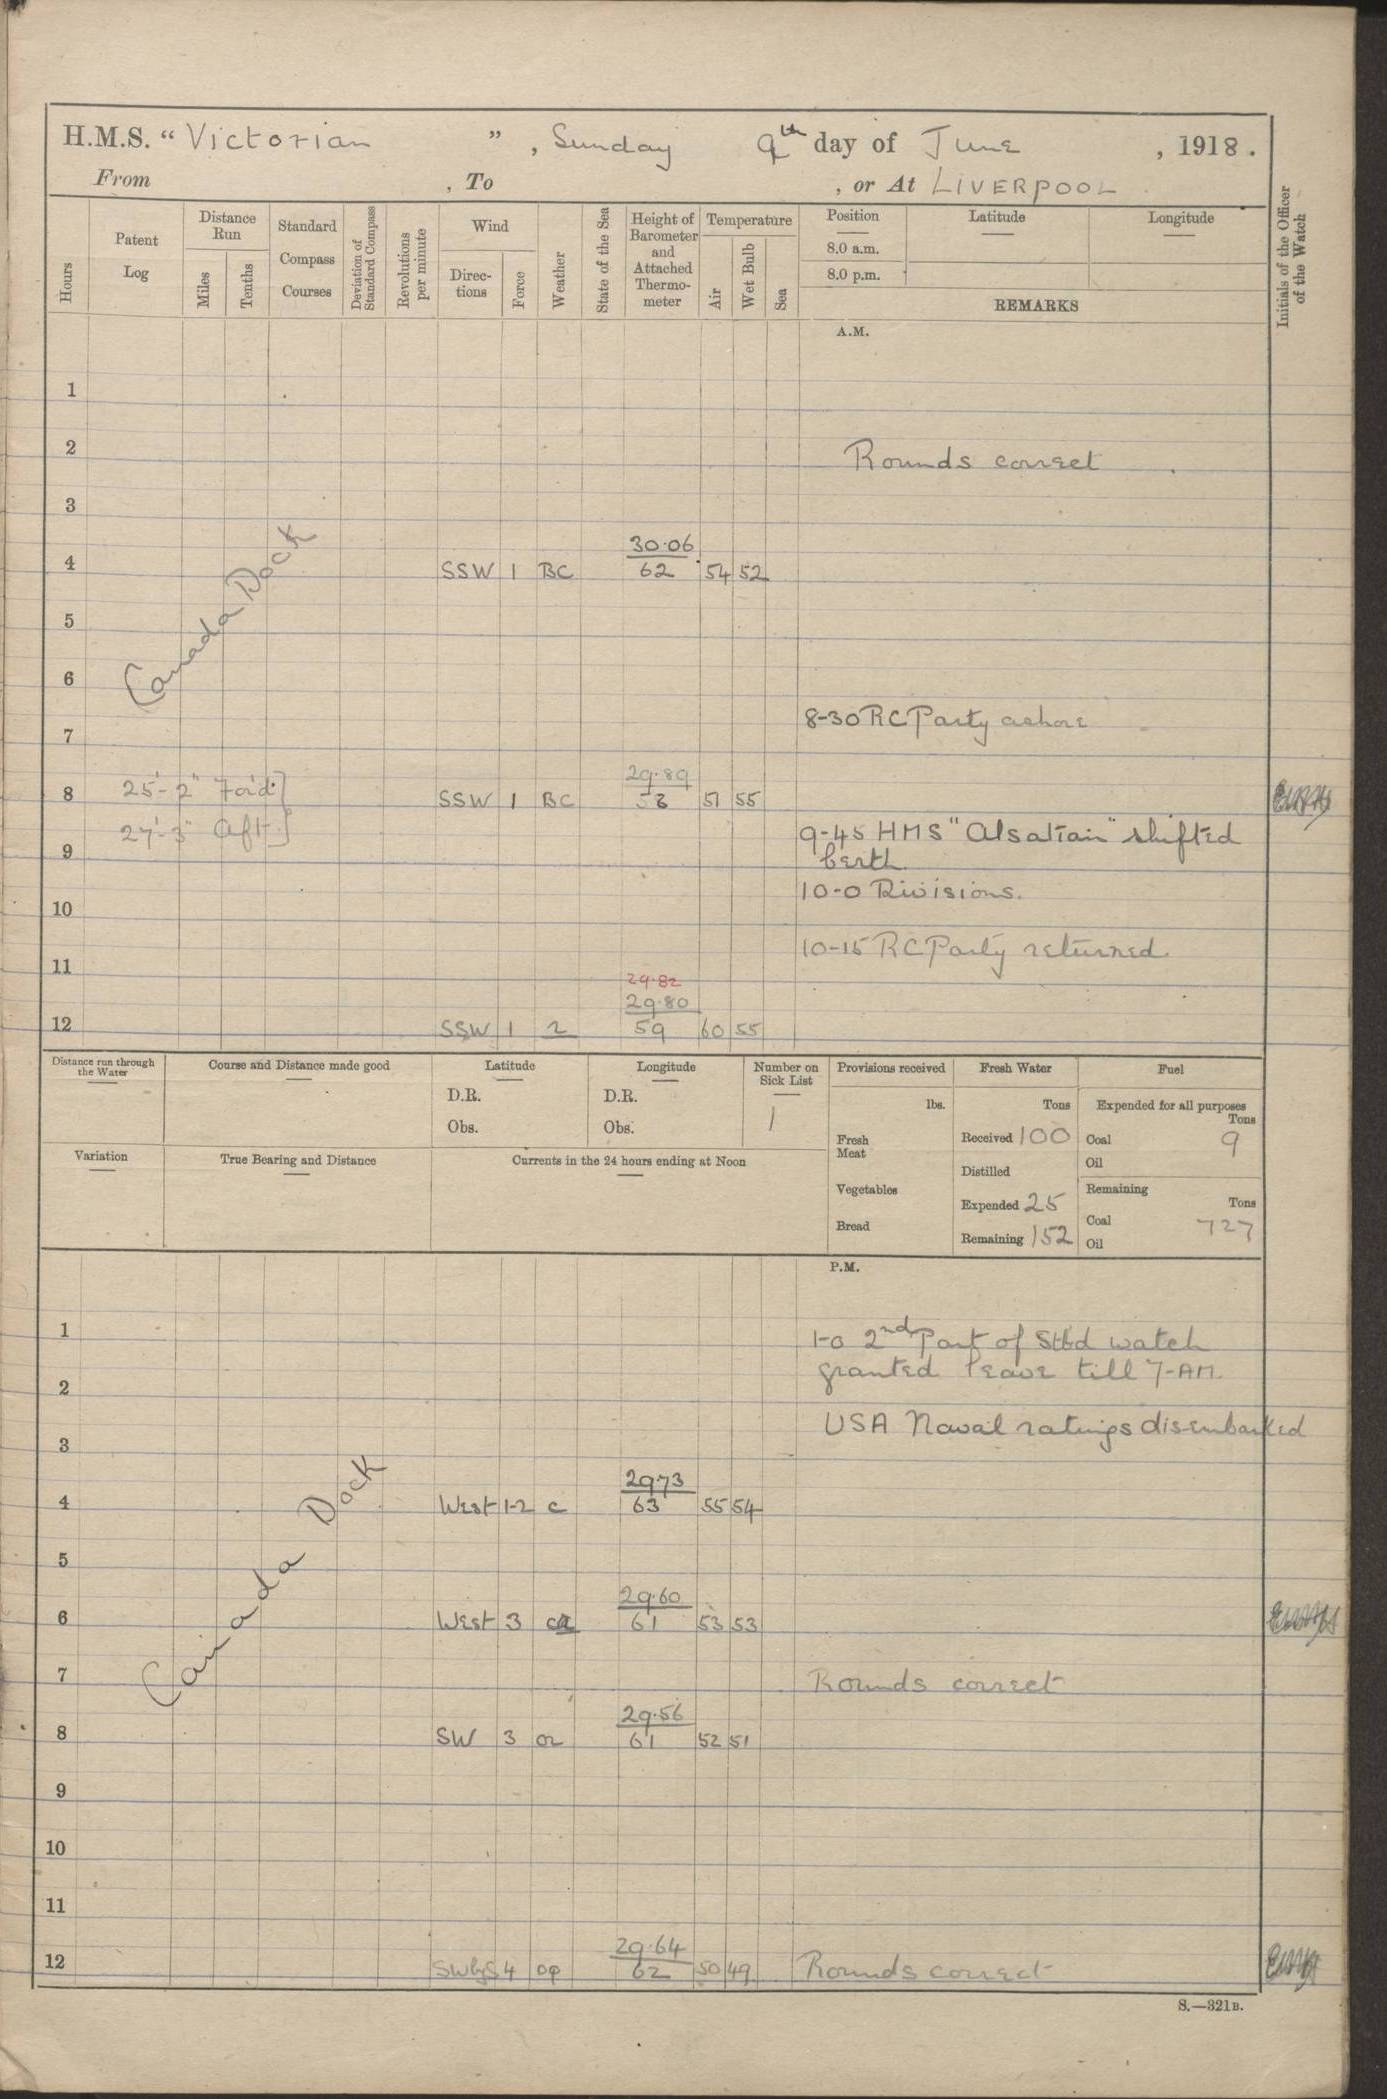 H.M.S. “Victorian”, Sunday 9th day of June, 1918.
From , To , or At LIVERPOOL
Hours
Patent Log
Distance Run
Miles
Tenths
Standard Compass Courses
Deviation of Standard Compass
Revolutions per minute
Wind
Direc-tions
Force
Weather
State of the Sea
Height of Barometer and Attached Thermo-meter
Temperature
Air
Wet Bulb
Sea
Position
Latitude
Longitude
8.0 a.m.
8.0 p.m.
REMARKS
Initials of the Officer of the Watch
A.M.
1
2 Rounds correct
3
30.06
4 SSW 1 BC 62 54 52
Canada Dock
5
6
8-30 RC Party ashore
7
29.89
8 25'-2" For'd SSW 1 BC 51 55
27'-3" Aft
9-45 HMS "Alsatian" shifted
9 berth
10-0 Divisions.
10
10-15 RC Party returned
11
29.82
29.80
12 SSW 1 59 60 55
Distance run through the Water
Course and Distance made good
Latitude
D.R.
Obs.
Longitude
D.R.
Obs.
Number on Sick List
1
Provisions received
lbs.
Fresh Meat
Vegetables
Bread
Fresh Water
Tons
Received 100
Distilled
Expended 25
Remaining 152
Fuel
Expended for all purposes
Tons
Coal 9
Oil
Remaining
Tons
Coal 727
Oil
Variation
True Bearing and Distance
Currents in the 24 hours ending at Noon
P.M.
1 1-0 2nd Part of Stbd watch
granted leave till 7-AM.
2
USA Naval ratings disembarked
3
2973
4 West 1-2 c 63 55 54
Canada Dock
5
29.60
6 West 3 61 53 53
7 Rounds correct
29.56
8 SW 3 61 52 51
9
10
11
29.64
12 SWbyS 4 op 62 50 49 Rounds correct
S.—321B.